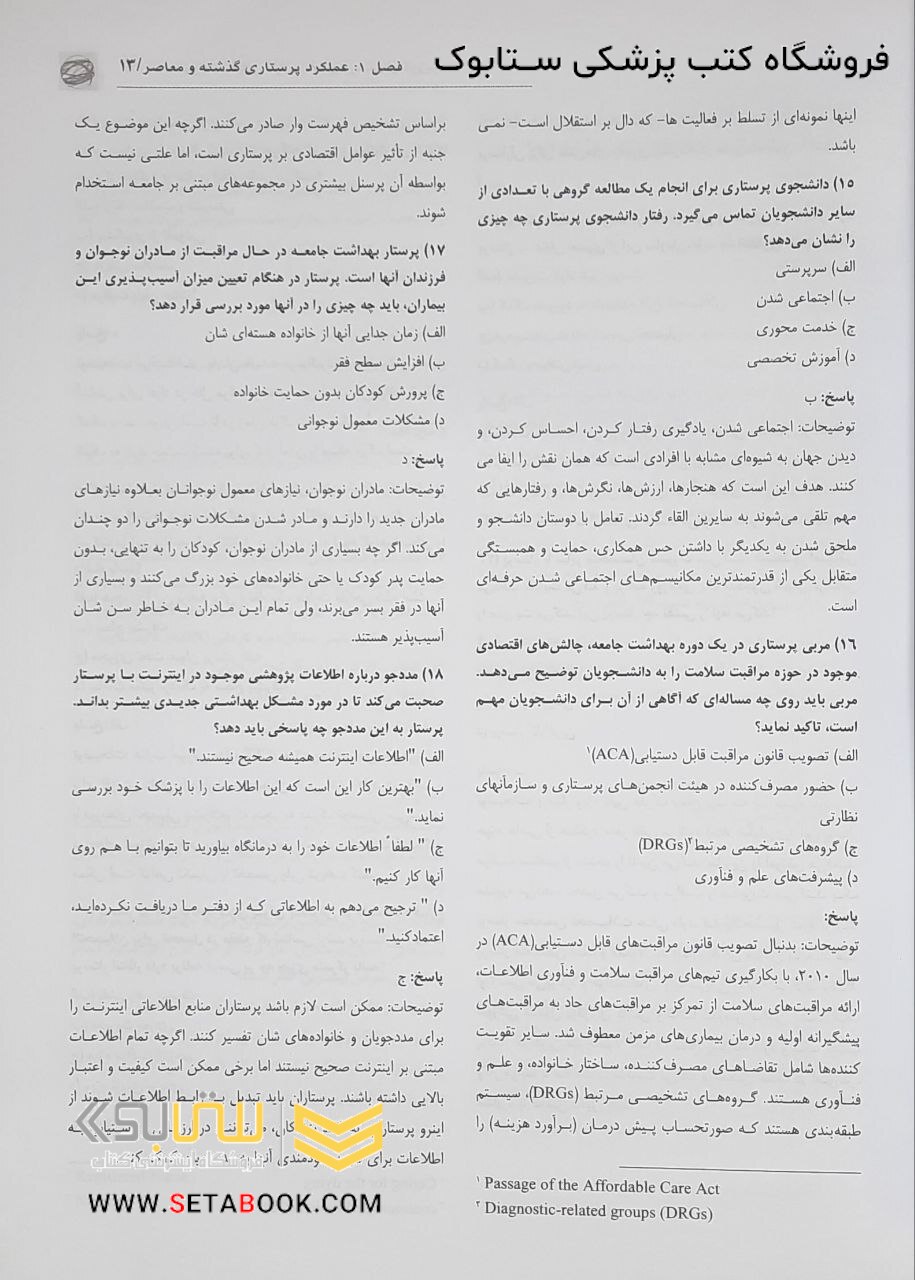 فروشگاه کتب پزشکی ستابوک
فصل ۱: عملکرد پرستاری گذشته و معاصر/۱۳
اینها نمونه‌ای از تسلط بر فعالیت ها- که دال بر استقلال است- نمی
باشد.
۱۵) دانشجوی پرستاری برای انجام یک مطالعه گروهی با تعدادی از
سایر دانشجویان تماس می‌گیرد. رفتار دانشجوی پرستاری چه چیزی
را نشان می‌دهد؟
الف) سرپرستی
ب) اجتماعی شدن
ج) خدمت محوری
د) آموزش تخصصی
پاسخ: ب
توضیحات: اجتماعی شدن، یادگیری رفتار کردن، احساس کردن، و
دیدن جهان به شیوه‌ای مشابه با افرادی است که همان نقش را ایفا می
کنند. هدف این است که هنجارها، ارزش‌ها، نگرش‌ها، و رفتارهایی که
مهم تلقی می‌شوند به سایرین القاء گردند. تعامل با دوستان دانشجو و
ملحق شدن به یکدیگر با داشتن حس همکاری، حمایت و همبستگی
متقابل یکی از قدرتمندترین مکانیسم‌های اجتماعی شدن حرفه‌ای
است.
۱۶) مربی پرستاری در یک دوره بهداشت جامعه، چالش‌های اقتصادی
موجود در حوزه مراقبت سلامت را به دانشجویان توضیح می‌دهد.
مربی باید روی چه مساله‌ای که آگاهی از آن برای دانشجویان مهم
است، تاکید نماید؟
الف) تصویب قانون مراقبت قابل دستیابی(ACA)۱
ب) حضور مصرف‌کننده در هیئت انجمن‌های پرستاری و سازمآنهای
نظارتی
ج) گروه‌های تشخیصی مرتبط۲(DRGs)
د) پیشرفت‌های علم و فنآوری
پاسخ:
توضیحات: بدنبال تصویب قانون مراقبت‌های قابل دستیابی(ACA) در
سال ۲۰۱۰، با بکارگیری تیم‌های مراقبت سلامت و فنآوری اطلاعات،
ارائه مراقبت‌های سلامت از تمرکز بر مراقبت‌های حاد به مراقبت‌های
پیشگیرانه اولیه و درمان بیماری‌های مزمن معطوف شد. سایر تقویت
کننده‌ها شامل تقاضاهای مصرف‌کننده، ساختار خانواده، و علم و
فنآوری هستند. گروه‌های تشخیصی مرتبط (DRGs)، سیستم
طبقه‌بندی هستند که صورتحساب پیش درمان (برآورد هزینه) را
۱ Passage of the Affordable Care Act
۲ Diagnostic-related groups (DRGs)
براساس تشخیص فهرست وار صادر می‌کنند. اگرچه این موضوع یک
جنبه از تأثیر عوامل اقتصادی بر پرستاری است، اما علتی نیست که
بواسطه آن پرسنل بیشتری در مجموعه‌های مبتنی بر جامعه استخدام
شوند.
۱۷) پرستار بهداشت جامعه در حال مراقبت از مادران نوجوان و
فرزندان آنها است. پرستار در هنگام تعیین میزان آسیب‌پذیری این
بیماران، باید چه چیزی را در آنها مورد بررسی قرار دهد؟
الف) زمان جدایی آنها از خانواده هسته‌ای شان
ب) افزایش سطح فقر
ج) پرورش کودکان بدون حمایت خانواده
د) مشکلات معمول نوجوانی
پاسخ: د
توضیحات: مادران نوجوان، نیازهای معمول نوجوانان بعلاوه نیازهای
مادران جدید را دارند و مادر شدن مشکلات نوجوانی را دو چندان
می‌کند. اگر چه بسیاری از مادران نوجوان، کودکان را به تنهایی، بدون
حمایت پدر کودک یا حتی خانواده‌های خود بزرگ می‌کنند و بسیاری از
آنها در فقر بسر می‌برند، ولی تمام این مادران به خاطر سن شان
آسیب‌پذیر هستند.
۱۸) مددجو درباره اطلاعات پژوهشی موجود در اینترنت با پرستار
صحبت می‌کند تا در مورد مشکل بهداشتی جدیدی بیشتر بداند.
پرستار به این مددجو چه پاسخی باید دهد؟
الف) "اطلاعات اینترنت همیشه صحیح نیستند."
ب) "بهترین کار این است که این اطلاعات را با پزشک خود بررسی
نماید."
ج) " لطفاً اطلاعات خود را به درمانگاه بیاورید تا بتوانیم با هم روی
آنها کار کنیم."
د) " ترجیح می‌دهم به اطلاعاتی که از دفتر ما دریافت نکرده‌اید،
اعتمادکنید."
پاسخ: ج
توضیحات: ممکن است لازم باشد پرستاران منابع اطلاعاتی اینترنت را
برای مددجویان و خانواده‌های شان تفسیر کنند. اگرچه تمام اطلاعات
مبتنی بر اینترنت صحیح نیستند اما برخی ممکن است کیفیت و اعتبار
بالایی داشته باشند. پرستاران باید تبدیل به رابط اطلاعات شوند از
اینرو پرستاران
اطلاعات برای
ستابوک
فروشگاه اینترنتی کتاب
WWW.SETABOOK.COM